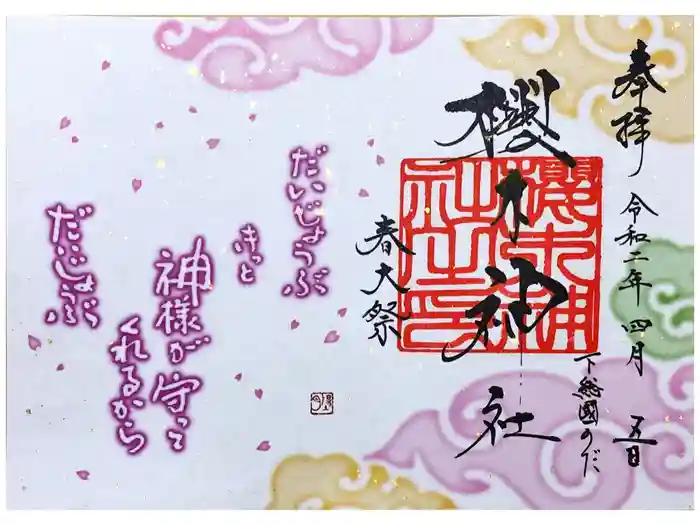 奉拝
令和二年四月五日
下総國のだ
櫻木神社
春大祭
だいじょうぶ
きっと
神様が守って
くれるから
だいじょうぶ